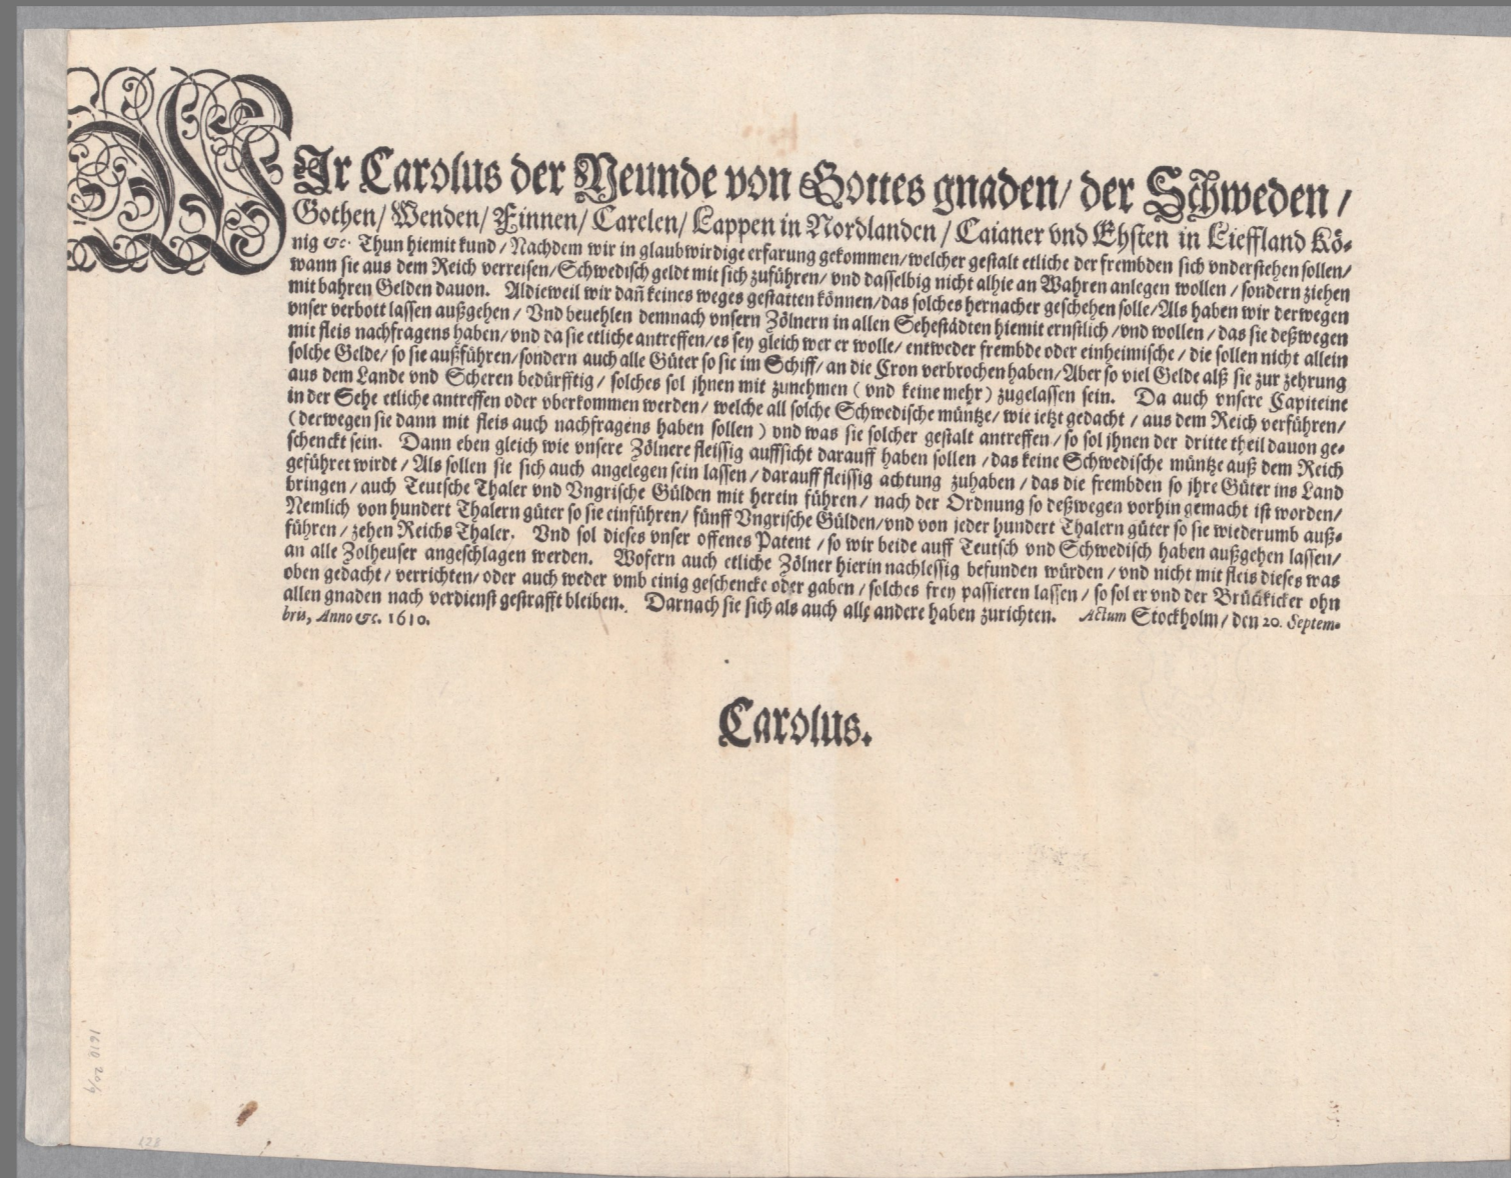 WIr Carolus der Neunde von Gottes gnaden/ der Schweden /
Gothen/ Wenden/ Finnen/ Carelen/ Lappen in Nordlanden / Caianer vnd Ehsten in Lieffland Kö-
nig &c. Thun hiemit kund / Nachdem wir in glaubwirdige erfarung gekommen/welcher gestalt etliche der frembden sich vnderstehen sollen/
wann sie aus dem Reich verreisen/Schwedisch geldt mit sich zuführen/ vnd dasselbig nicht alhie an Wahren anlegen wollen / sondern ziehen
mit bahren Gelden dauon. Aldieweil wir dañ keines weges gestatten können/das solches hernacher geschehen solle/Als haben wir derwegen
vnser verbott lassen außgehen / Vnd beuehlen demnach vnsern Zölnern in allen Sehestädten hiemit ernstlich/vnd wollen / das sie deßwegen
mit fleis nachfragens haben/vnd da sie etliche antreffen/es sey gleich wer er wolle/ entweder frembde oder einheimische / die sollen nicht allein
solche Gelde/ so sie außführen/sondern auch alle Güter so sie im Schiff/ an die Cron verbrochen haben/Aber so viel Gelde alß sie zur zehrung
aus dem Lande vnd Scheren bedürfftig / solches sol jhnen mit zunehmen ( vnd keine mehr ) zugelassen sein. Da auch vnsere Capiteine
in der Sehe etliche antreffen oder vberkommen werden/ welche all solche Schwedische müntze/ wie ietzt gedacht / aus dem Reich verführen/
( derwegen sie dann mit fleis auch nachfragens haben sollen ) vnd was sie solcher gestalt antreffen/ so sol ihnen der dritte theil dauon ge-
schenckt sein. Dann eben gleich wie vnsere Zölnere fleissig auffsicht darauff haben sollen / das keine Schwedische müntze auß dem Reich
geführet wirdt / Als sollen sie sich auch angelegen sein lassen / darauff fleissig achtung zuhaben / das die frembden so jhre Güter ins Land
bringen / auch Teutsche Thaler vnd Vngrische Gülden mit herein führen / nach der Ordnung so deßwegen vorhin gemacht ist worden/
Nemlich von hundert Thalern güter so sie einführen/ fünff Vngrische Gülden/vnd von jeder hundert Thalern güter so sie wiederumb auß-
führen / zehen Reichs Thaler. Vnd sol dieses vnser offenes Patent / so wir beide auff Teutsch vnd Schwedisch haben außgehen lassen/
an alle Zolheuser angeschlagen werden. Wofern auch etliche Zölner hierin nachlessig befunden würden / vnd nicht mit fleis dieses was
oben gedacht / verrichten/ oder auch weder vmb einig geschencke oder gaben / solches frey passieren lassen / so sol er vnd der Brüükicker ohn
allen gnaden nach verdienst gestrafft bleiben. Darnach sie sich als auch alle andere haben zurichten. Actum Stockholm / den 20. Septem-
bris, Anno &c. 1610.
Carolus.
1610 20/9
128